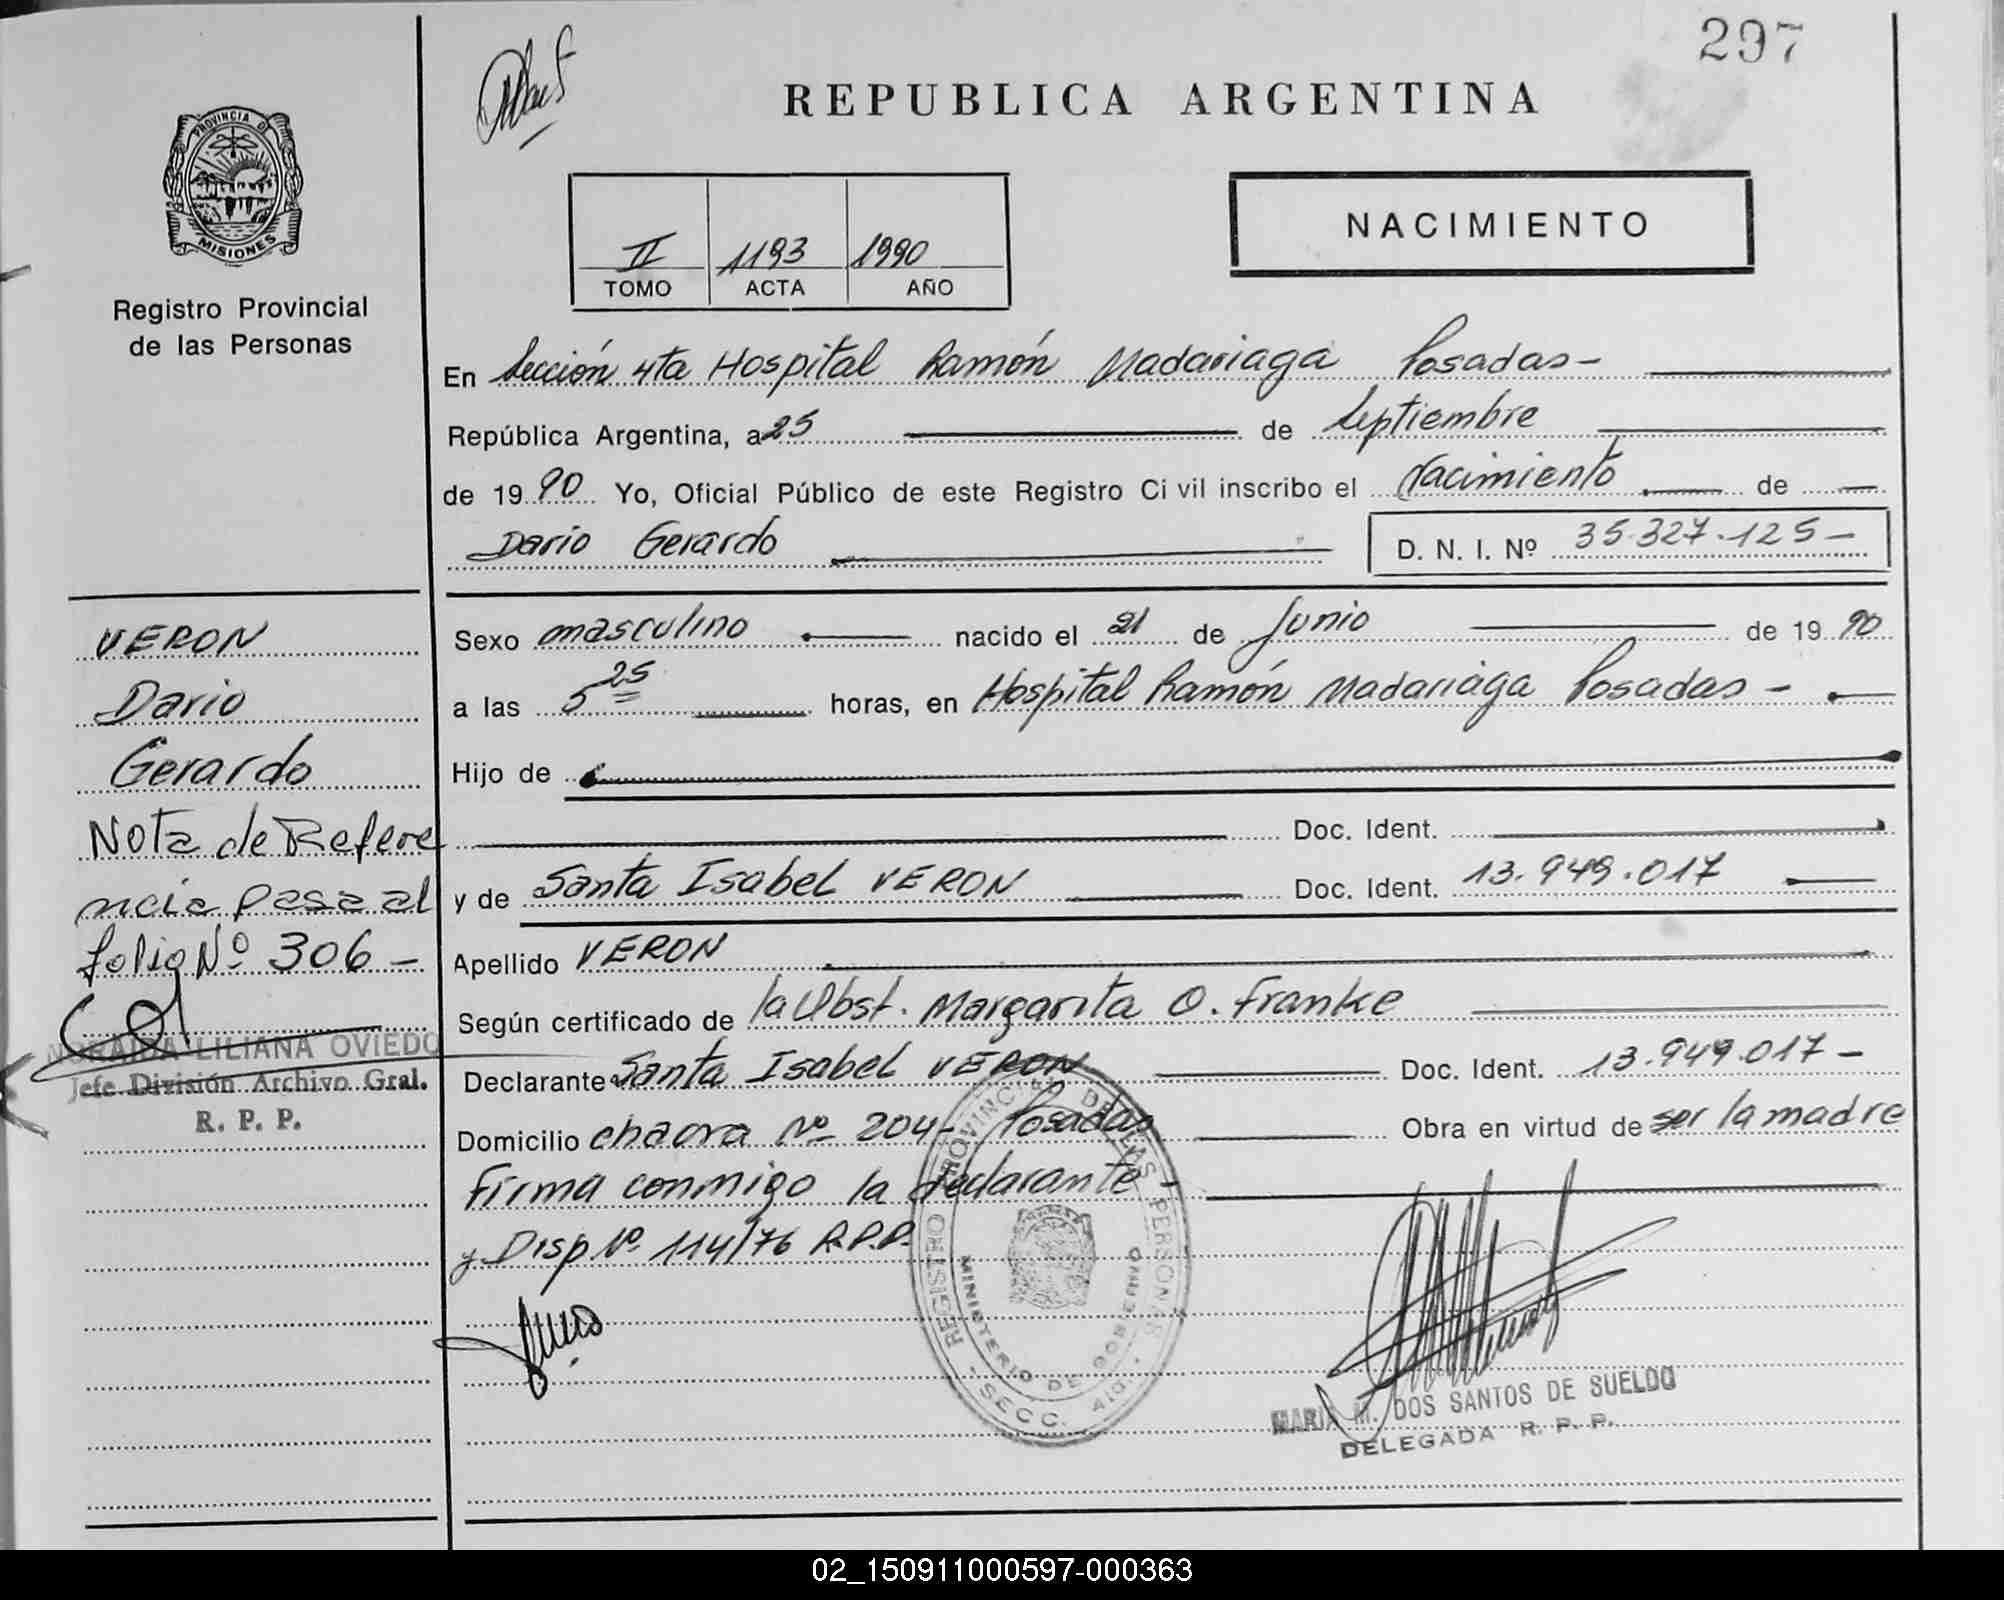 297
REPUBLICA ARGENTINA
PROVINCIA DE
MISIONES
Registro Provincial
de las Personas
NACIMIENTO
II 1193 1990
TOMO ACTA AÑO
En Sección 4ta Hospital Ramón Madariaga Posadas-
República Argentina, a 25 de Septiembre
de 1990 Yo, Oficial Público de este Registro Civil inscribo el Nacimiento de
Dario Gerardo D. N. I. Nº 35.327.125-
VERON
Dario
Gerardo
Nota de Refere
ncia pasa al
folio Nº 306-
NORAIDA LILIANA OVIEDO
Jefe División Archivo Gral.
R. P. P.
Sexo masculino nacido el 21 de Junio de 1990
a las 5 25 horas, en Hospital Ramón Madariaga Posadas-
Hijo de
Doc. Ident.
y de Santa Isabel VERON Doc. Ident. 13.949.017
Apellido VERON
Según certificado de la Obst. Margarita O. Franke
Declarante Santa Isabel VERON Doc. Ident. 13.949.017-
Domicilio chacra Nº 204- Posadas Obra en virtud de ser la madre
Firma conmigo la declarante-
y Disp. Nº 114/76 R.P.P.
REGISTRO PROVINCIAL DE LAS PERSONAS
MINISTERIO DE GOBIERNO
SECC. 4ta.
MARIA M. DOS SANTOS DE SUELDO
DELEGADA R. P. P.
02_150911000597-000363